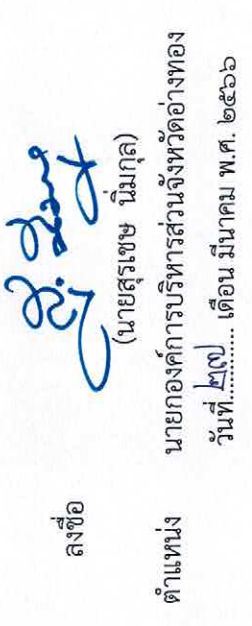 ลงชื่อ
(นายสุรเชษ นิ่มกุล)
ตำแหน่ง นายกองค์การบริหารส่วนจังหวัดอ่างทอง
วันที่ ๒๗ เดือน มีนาคม พ.ศ. ๒๕๖๖